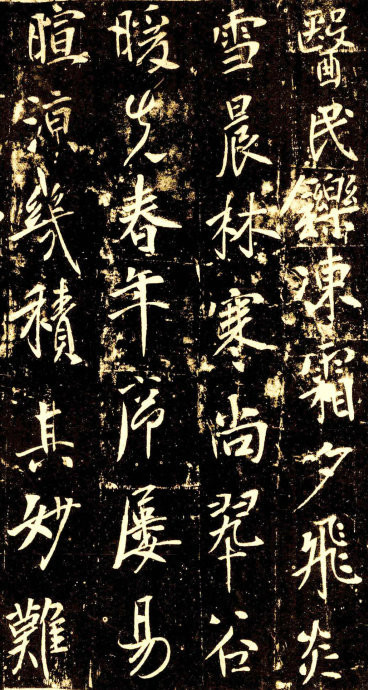 毉民鑠凍霜夕飛炎
雪晨林寒尚翠谷
暖先春年序屢易
暄涼幾積其妙難